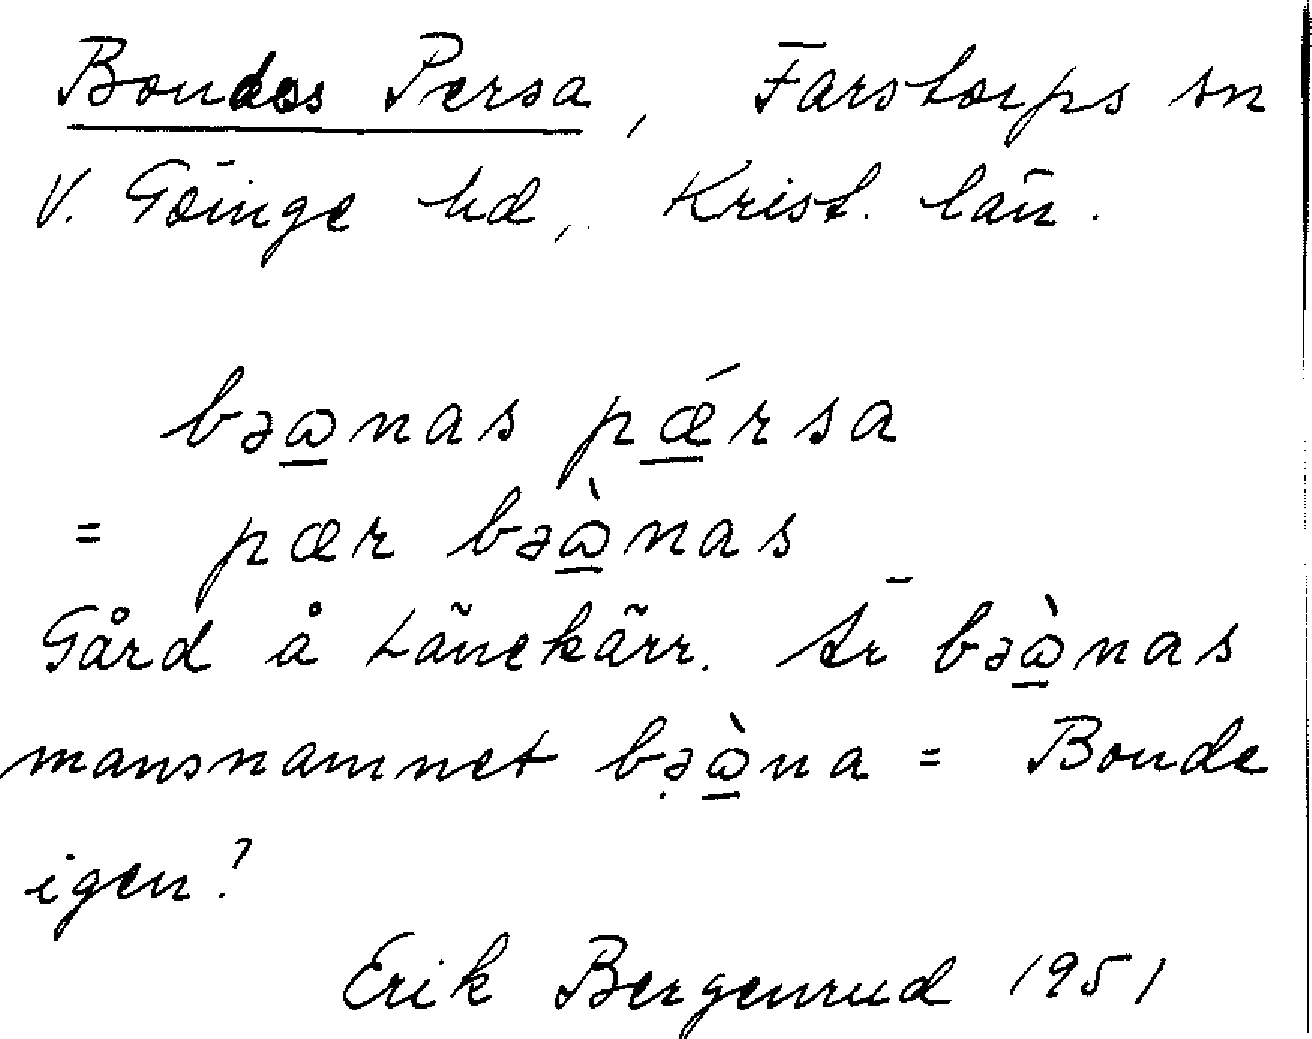 Bondes Persa, Farstorps sn
V. Göinge hd, Krist. län.
bəω̲nas pǽ̲rsa
= pær bəὼ̲nas
Gård å Länekärr. Är bəὼ̲nas
mansnamnet bəὼ̲na = Bonde
igen?
Erik Bergenrud 1951